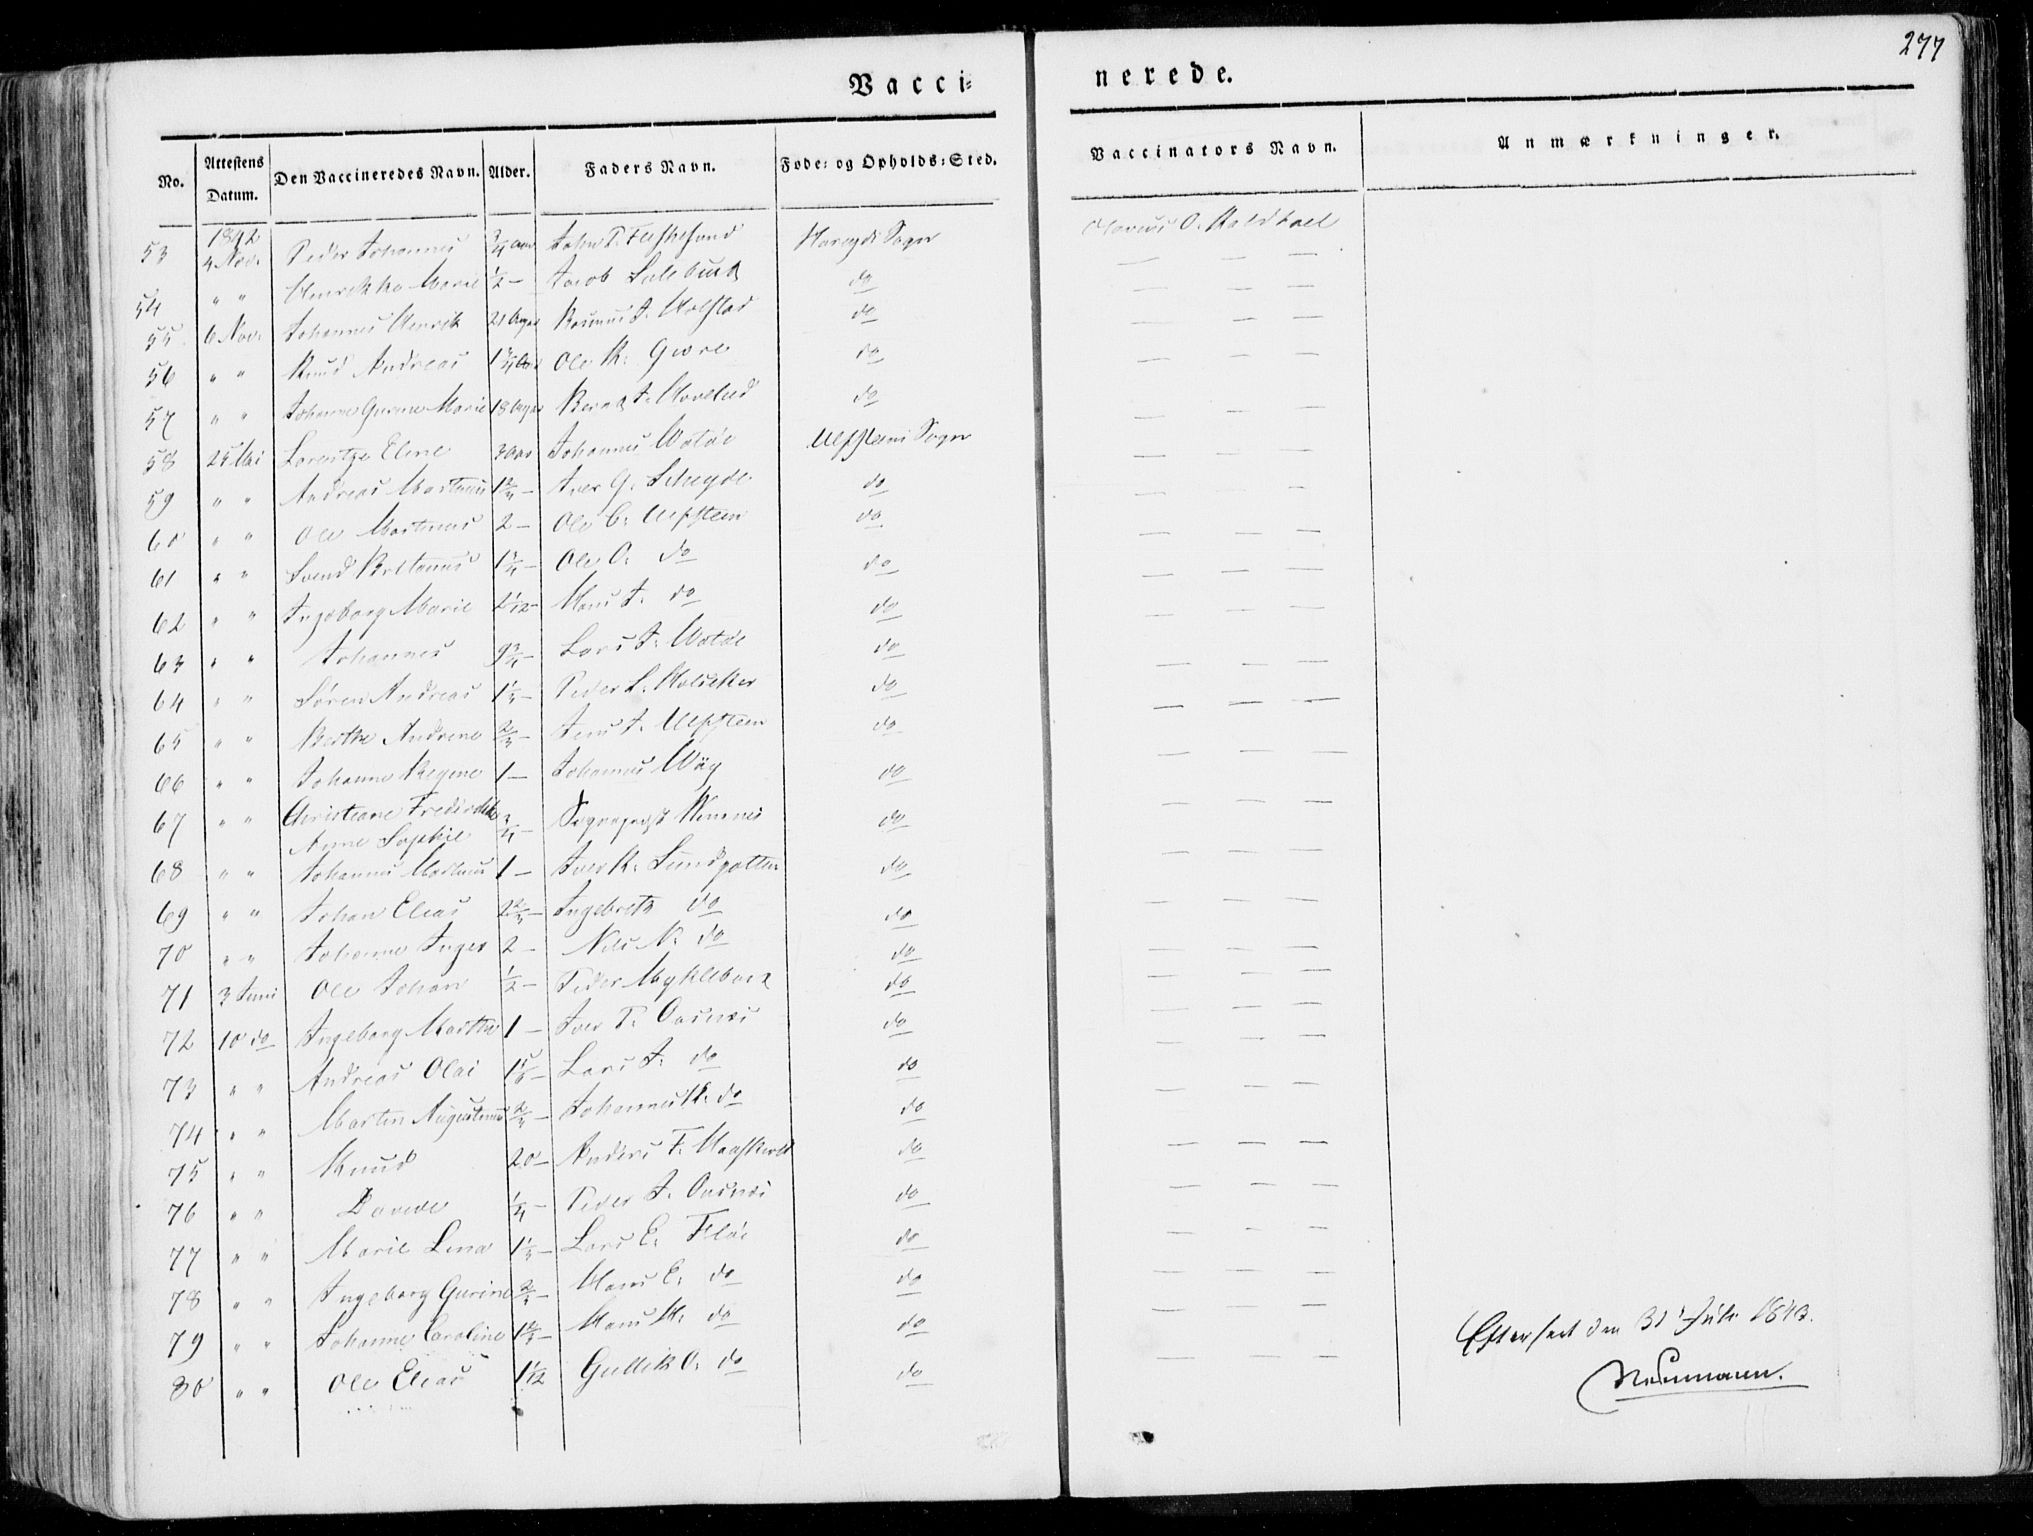 277
Vacci- nerede.
No. Attestens Datum. Den Vaccineredes Navn. Alder. Faders Navn. Føde- og Opholds-Sted. Vaccinators Navn. Anmærkninger.
53 1842 4 Nov. Peder Johannes 3/4 Aar John P. Flaskesund Hareyds Sogn O. Koldhoel
54 " " Henrikke Marie 1/2 — Jacob do — — —
55 6 Nov. Johannes Henrik 21 Uger Rasmus J. do — — —
56 " " Knud Andreas 1 3/4 Aar Ole K. do — — —
57 " " Johanne Gurine Marie 18 Uger Bernt J. do — — —
58 25 Mai Lorentze Eline 3 Aar Johannes Watøe Ulfsteens Sogn — — —
59 " " Andreas Martinus 1 3/4 — Iver G. do — — —
60 " " Ole Martinus 2 — Ole C. Ulfsteen do — — —
61 " " Svend 1 3/4 — Ole O. do do — — —
62 " " Ingeborg Marie 2 1/12 — Hans J. do do — — —
63 " " Johannes 9 3/4 — Lars J. Watøe do — — —
64 " " Søren Andreas — Peder L. do — — —
65 " " Berthe Andrine — Jens J. Ulfsteen do — — —
66 " " Johanne Regine 1 — Johannes Wåg do — — —
67 " " Christiane Frederikke Anne Sophie 3/4 — Sogneprest do — — —
68 " " Johannes Martinus 1 — Iver K. Sundgotten do — — —
69 " " Johan Elias — Ingebrigt do do — — —
70 " " Johanne Inger 2 — Nils N. do do — — —
71 3 Juni Ole Johan 1/2 — Peder Myklebust do — — —
72 10 do Ingeborg Marthe 1 — Iver P. Oasnes do — — —
73 " " Andreas Olai — Lars J. do do — — —
74 " " Martin Augustinus — Johannes K. do do
75 " " Knud 20 — Anders F. do — — —
76 " " 1/4 — Peder J. Oasnes do — — —
77 " " Marie Lena — Lars E. Fløe do — — —
78 " " Ingeborg Gurine — Hans E. do do — — —
79 " " Johanne Caroline — Hans H. do do — — —
80 " " Ole Elias 1 1/12 Gullik O. do do — — —
Efterseet den 31' Juli 1843.
Neumann.